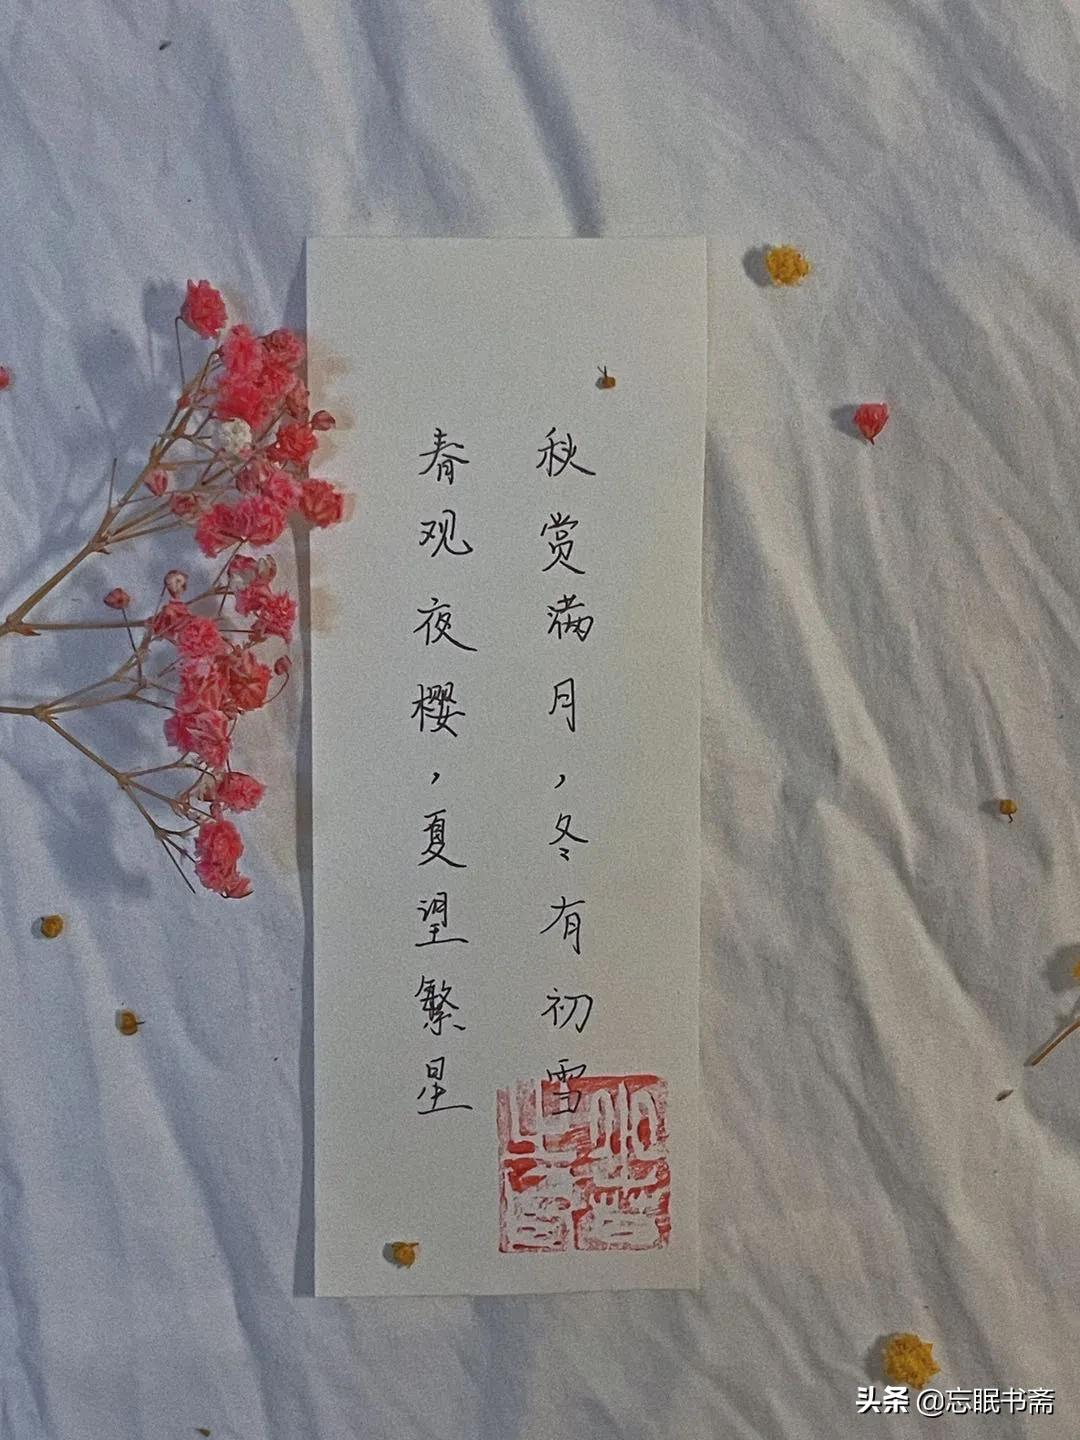 春观夜樱，夏望繁星
秋赏满月，冬有初雪
头条 @忘眠书斋